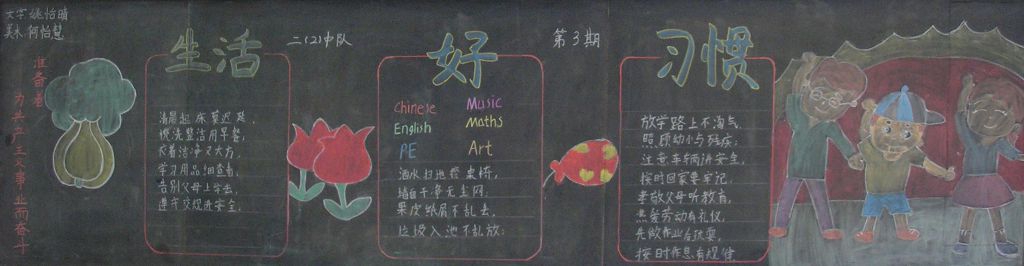 文字 姚怡晴
美术 何怡慧
准备着
为共产主义事业而奋斗
生活 好 习惯
二(2)中队
第3期
清晨起床莫迟延,
梳洗整洁用早餐,
衣着洁净又大方,
学习用品细查看,
告别父母上学去,
遵守交规连安全。
Chinese Music
English Maths
PE Art
洒水扫地擦桌椅,
墙白干净无尘网,
果皮纸屑不乱丢,
垃圾入池不乱放;
放学路上不淘气,
照顾幼小与残疾;
注意车辆讲安全,
按时回家要牢记,
孝敬父母听教育,
热爱劳动有礼仪,
先做作业后玩耍,
按时作息有规律